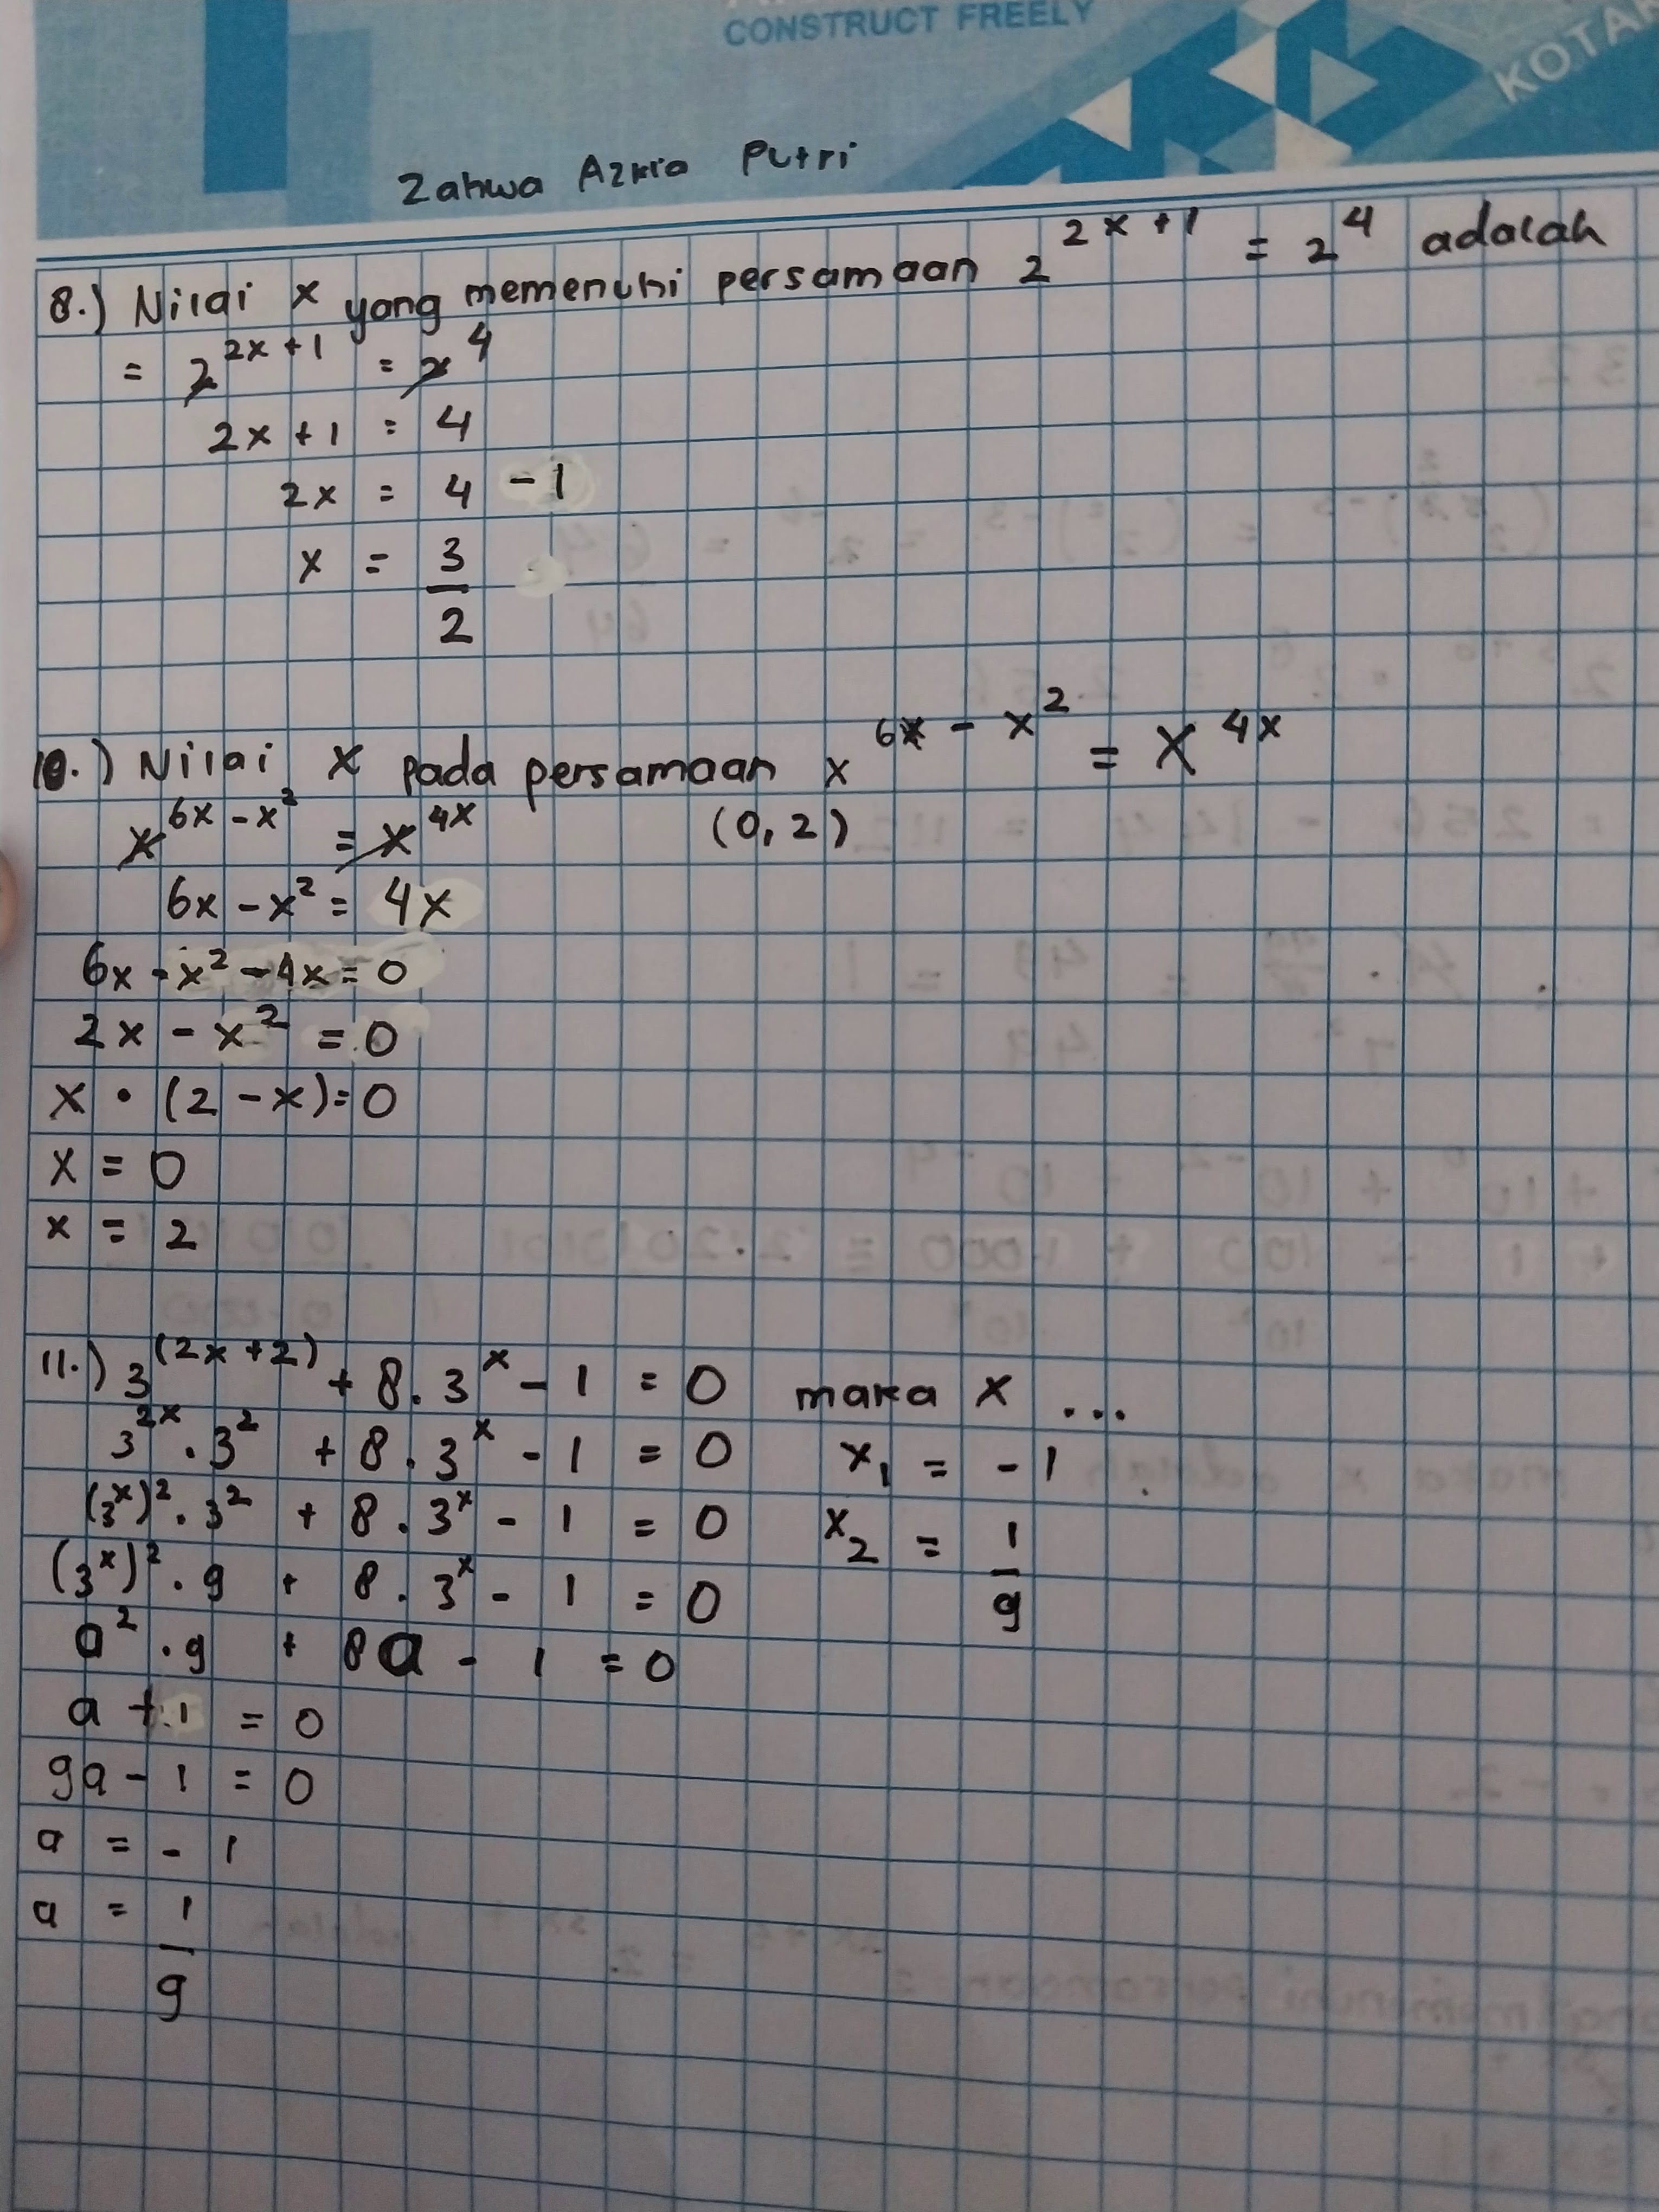 CONSTRUCT FREELY
KOTAK
Zahwa Azkia Putri
8.) Nilai x yang memenuhi persamaan 2^(2x+1) = 2^4 adalah
= 2^(2x+1) = 2^4
2x + 1 = 4
2x = 4 - 1
x = 3/2
10.) Nilai x pada persamaan x^(6x - x²) = x^(4x)
x^(6x - x²) = x^(4x) (0, 2)
6x - x² = 4x
6x - x² - 4x = 0
2x - x² = 0
x • (2 - x) = 0
x = 0
x = 2
11.) 3^(2x+2) + 8 . 3^x - 1 = 0 maka x ...
3^(2x) . 3² + 8 . 3^x - 1 = 0 x₁ = - 1
(3^x)² . 3² + 8 . 3^x - 1 = 0 x₂ = 1/9
(3^x)² . 9 + 8 . 3^x - 1 = 0
a² . 9 + 8a - 1 = 0
a + 1 = 0
9a - 1 = 0
a = - 1
a = 1/9